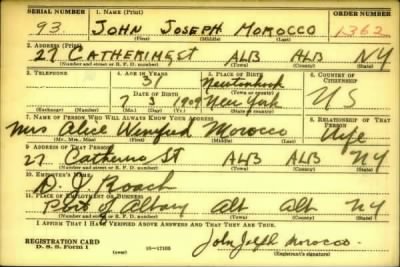 SERIAL NUMBER 1. NAME (Print) ORDER NUMBER
93. JOHN JOSEPH MOROCCO 1362
(First) (Middle) (Last)
2. ADDRESS (Print)
27 CATHERINE ST ALB ALB NY
(Number and street or R. F. D. number) (Town) (County) (State)
3. TELEPHONE 4. AGE IN YEARS 5. PLACE OF BIRTH 6. COUNTRY OF CITIZENSHIP
31 Newtonhook
DATE OF BIRTH
7 3 1909 New York US
(Exchange) (Number) (Mo.) (Day) (Yr.) (State or country)
7. NAME OF PERSON WHO WILL ALWAYS KNOW YOUR ADDRESS 8. RELATIONSHIP OF THAT PERSON
Mrs Alice Winifred Morocco Wife
(Mr., Mrs., Miss) (First) (Middle) (Last)
9. ADDRESS OF THAT PERSON
27 Catherine St ALB ALB NY
(Number and street or R. F. D. number) (Town) (County) (State)
10. EMPLOYER'S NAME
D. J. Roach
11. PLACE OF EMPLOYMENT OR BUSINESS
Port of Albany Alb Alb NY
(Number and street or R. F. D. number) (Town) (County) (State)
I AFFIRM THAT I HAVE VERIFIED ABOVE ANSWERS AND THAT THEY ARE TRUE.
REGISTRATION CARD
D. S. S. Form 1 (over) 16—17105 John Joseph Morocco
(Registrant's signature)